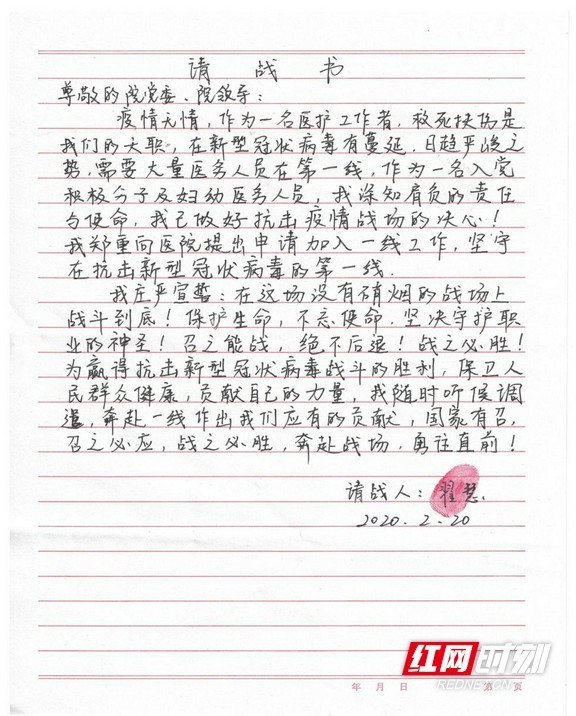 请战书
尊敬的院党委、院领导：
疫情无情，作为一名医护工作者，救死扶伤是
我们的天职，在新型冠状病毒有蔓延，日趋严峻之
势，需要大量医务人员在第一线，作为一名入党
积极分子及妇幼医务人员，我深知肩负的责任
与使命，我已做好抗击疫情战场的决心！
我郑重向医院提出申请加入一线工作，坚守
在抗击新型冠状病毒的第一线.
我庄严宣誓：在这场没有硝烟的战场上
战斗到底！保护生命，不忘使命.坚决守护职
业的神圣！召之能战，绝不后退！战之必胜！
为赢得抗击新型冠状病毒战斗的胜利，保卫人
民群众健康，贡献自己的力量，我随时听候调
遣，奔赴一线作出我们应有的贡献，国家有召，
召之必应，战之必胜，奔赴战场，勇往直前！
请战人：翟慧.
2020.2.20
红网时刻
REDNET.CN
年 月 日 第 页